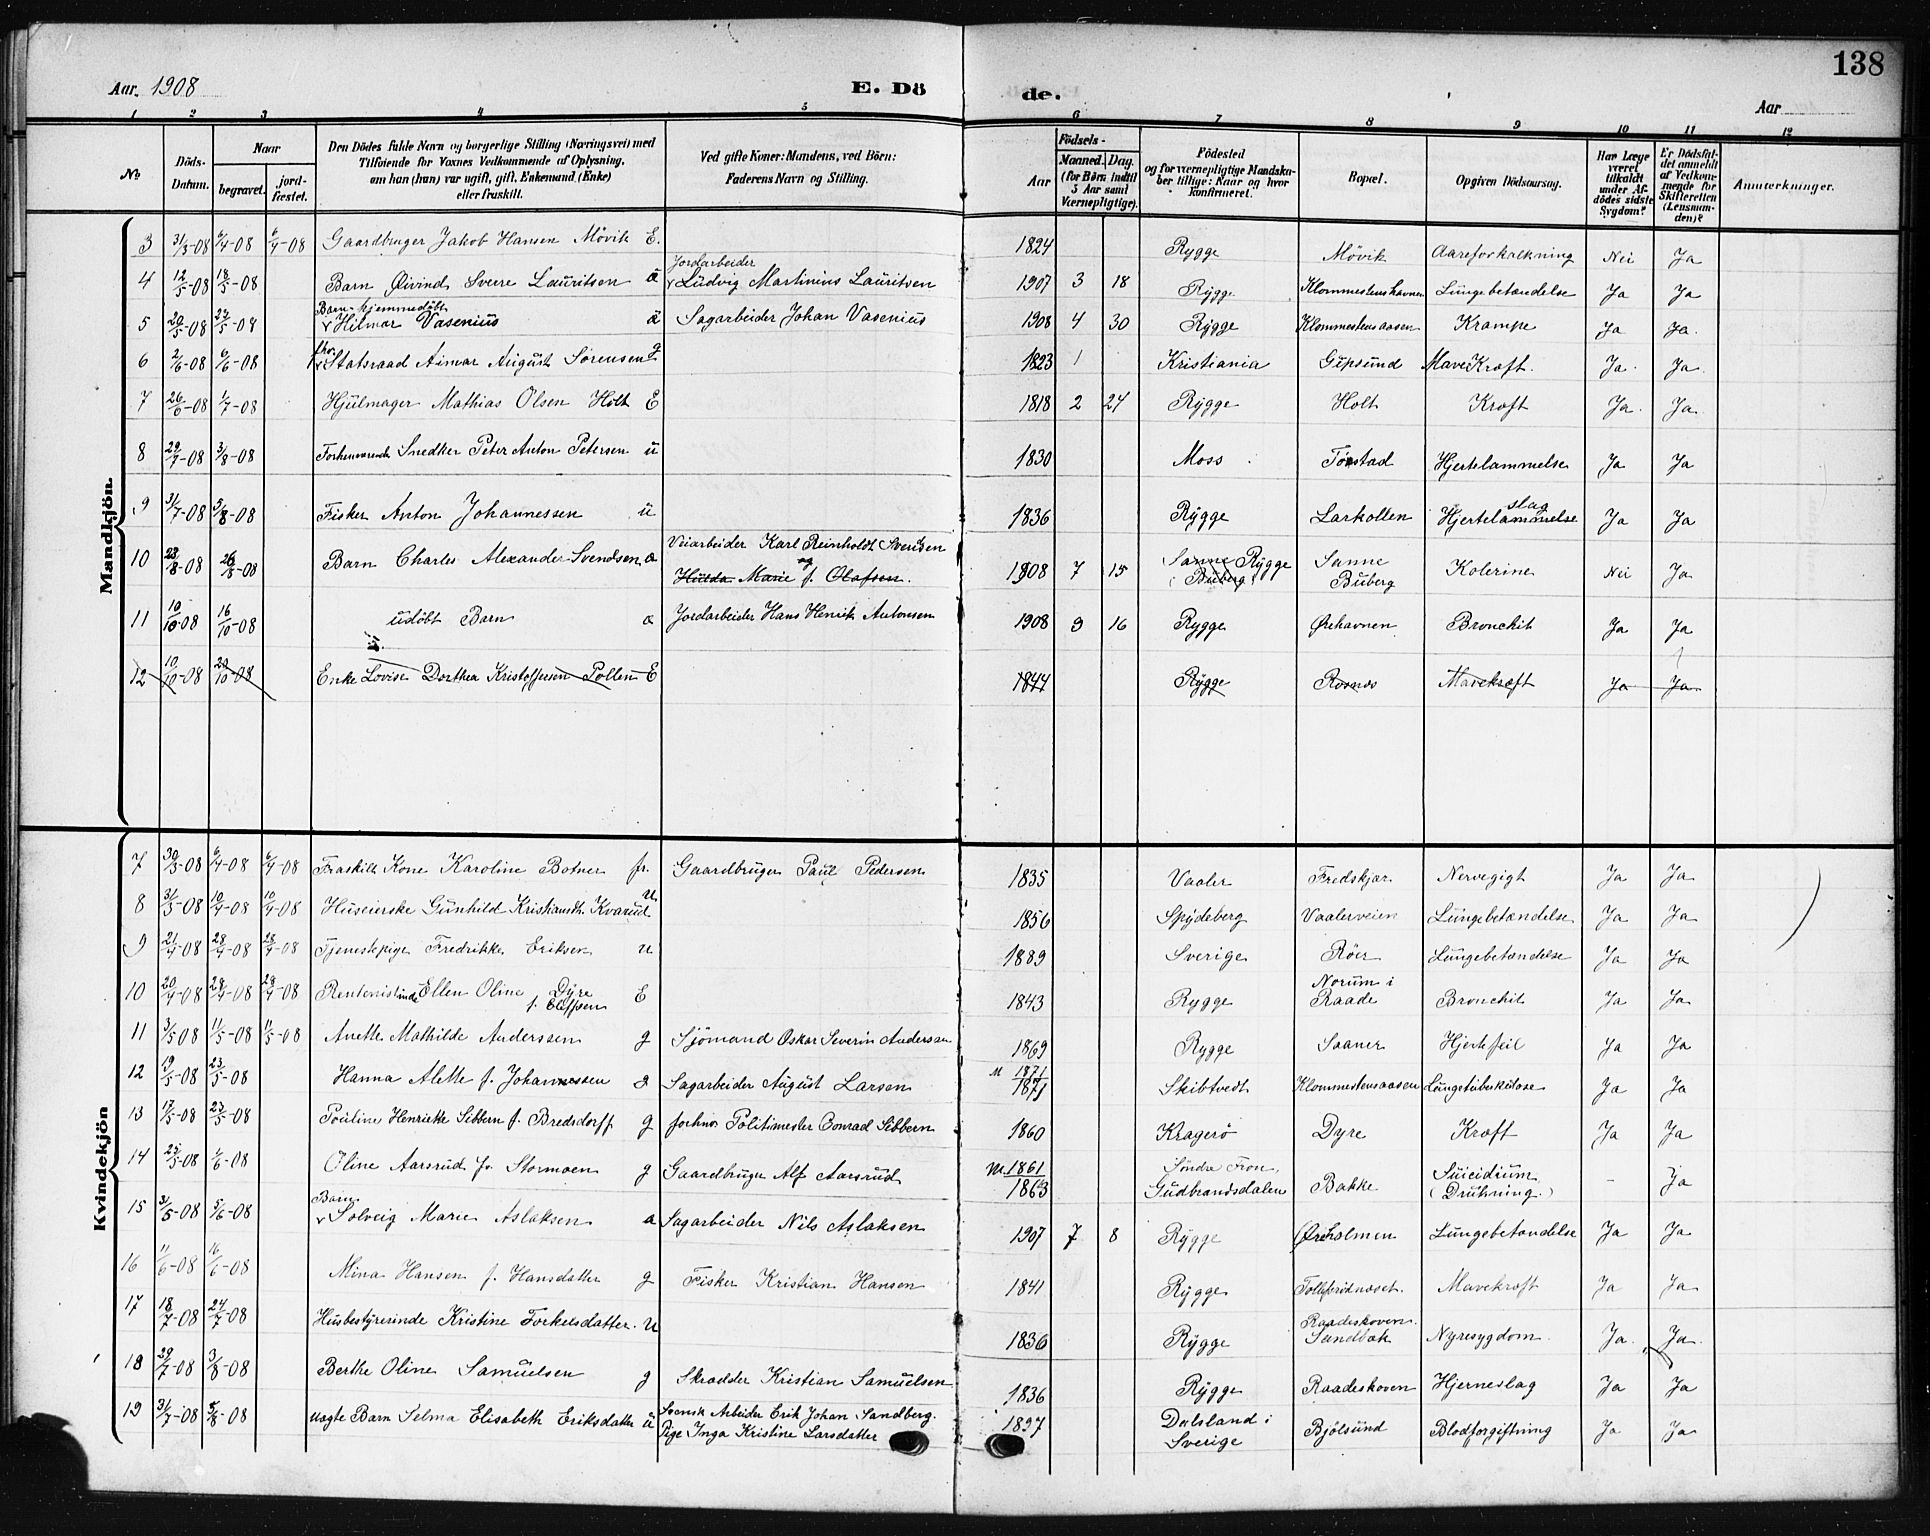 138
Aar. 1908
E. Dö
de.
Aar
1 2 3 4 5 6 7 8 9 10 11 12
No
Döds-Datum.
Naar
begravet.
jord-fæstet.
Den Dödes fulde Navn og borgerlige Stilling (Næringsvei) med
Tilföiende for Voxnes Vedkommende af Oplysning,
om han (hun) var ugift, gift, Enkemand (Enke)
eller fraskilt.
Ved gifte Koner: Mandens, ved Börn:
Faderens Navn og Stilling.
Födsels-
Aar
Maaned. Dag.
(for Börn indtil
5 Aar samt
Værnepligtige).
Födested
og for værnepligtige Mandska-
ber tillige: Naar og hvor
konfirmeret.
Bopæl.
Opgiven Dödsaarsag.
Har Læge
været
tilkaldt
under Af-
dödes sidste
Sygdom?
Er Dödsfal-
det anmeldt
af Vedkom-
mende for
Skifteretten
(Lensman-
den)?
Anmærkninger.
Mandkjön.
3 31/3-08 6/4-08 6/4-08 Gaardbruger Jakob Hansen Mövik E. 1824 Rygge Mövik Aareforkalkning Nei Ja
Jordarbeider
4 12/5-08 18/5-08 Barn Øivind Sverre Lauritsen a Ludvig Martinius Lauritsen 1907 3 18 Rygge Klommestenshavnen Lungebetændelse Ja Ja
Barn hjemmedöbt
5 20/5-08 27/5-08 Hilmar Vasenius a Sagarbeider Johan Vasenius 1908 4 30 Rygge Klommestensaasen Krampe Ja Ja
6 2/6-08 6/6-08 Statsraad Aimar August Sörensen g 1823 Kristiania Gipsund Mavekræft. Ja Ja
7 26/6-08 1/7-08 Hjulmager Mathias Olsen Holt E 1818 2 24 Rygge Holt Kræft Ja Ja
8 29/7-08 3/8-08 Forhenværende Snedker Peter Anton Petersen u 1830 Moss Tönstad Hjertelammelse Ja Ja
9 31/7-08 5/8-08 Fisker Anton Johannessen u 1836 Rygge Larkollen Hjertelammelse slag Ja Ja
10 23/8-08 26/8-08 Barn Charles Alexander Svendsen a Veiarbeider Karl Reinholdt Svendsen
og Hulda Marie f. Olafsen. 1908 7 15 Sanne Rygge (Buberg) Sanne Buberg Kolerine Nei Ja
11 10/10-08 16/10-08 udöbt Barn a Jordarbeider Hans Henrik Antonsen 1908 9 16 Rygge Ørehavnen Bronchit Ja Ja
12 10/10-08 20/10-08 Enke Lovise Dorthea Kristoffersen Pollen E 1844 Rygge Rosnæs Mavekræft Ja Ja
Kvindekjön
7 30/3-08 6/4-08 6/4-08 Fraskilt Kone Karoline Botner fr. Gaardbruger Paul Pedersen 1835 Vaaler Fredskjær Nervegigt Ja Ja
8 31/3-08 10/4-08 10/4-08 Huseierske Gunhild Kristiansdt. Kvarud U 1856 Spydeberg Vaalerveien Lungebetændelse Ja Ja
9 21/4-08 28/4-08 28/4-08 Tjenestepige Fredrikke Eriksen u 1889 Sverige Röer Lungebetændelse Ja Ja
10 20/4-08 28/4-08 28/4-08 Rentenistinde Ellen Oline Dyre f. Ellefsen E 1843 Rygge Norum i Raade Bronchit Ja Ja
11 3/5-08 11/5-08 11/5-08 Anette Mathilde Anderssen g Sjömand Oskar Severin Anderssen 1869 Rygge Saaner Hjertefeil Ja Ja
12 19/5-08 23/5-08 Hanna Alette f. Johannessen g Sagarbeider August Larsen M 1871 1871 Skibtvedt Klommestensaasen Lungetuberkulose Ja Ja
13 17/5-08 23/5-08 Pouline Henriette Sibbern f. Bredsdorff g forhv. Politimester Conrad Sibbern 1860 Kragerö Dyre Kræft Ja Ja
14 25/5-08 1/6-08 Oline Aarsrud f. Stormoen g Gaardbruger Alf Aarsrud M. 1861 1863 Söndre Fron, Gudbrandsdalen Bakke Suicidium (Drukning.) - Ja
Barn
15 31/5-08 5/6-08 Solveig Marie Aslaksen a Sagarbeider Nils Aslaksen 1907 7 8 Rygge Øreholmen Lungebetændelse Ja Ja
16 11/6-08 16/6-08 Mina Hansen f. Hansdatter g Fisker Kristian Hansen 1841 Rygge Tollefsrödnæset. Mavekræft Ja Ja
17 18/7-08 24/7-08 Husbestyrerinde Kristine Torkelsdatter. U 1836 Rygge Raadeskoven Sandbæk Nyresygdom Ja Ja
18 29/7-08 3/8-08 Berthe Oline Samuelsen g Skrædder Kristian Samuelsen 1836 Rygge Raadeskoven Hjerneslag Ja Ja
19 31/7-08 5/8-08 uægte Barn Selma Elisabeth Eriksdatter u Svensk Arbeider Erik Johan Sandberg.
Pige Inga Kristine Larsdatter 1897 Dalsland i Sverige Bjölsund Blodforgiftning Ja Ja